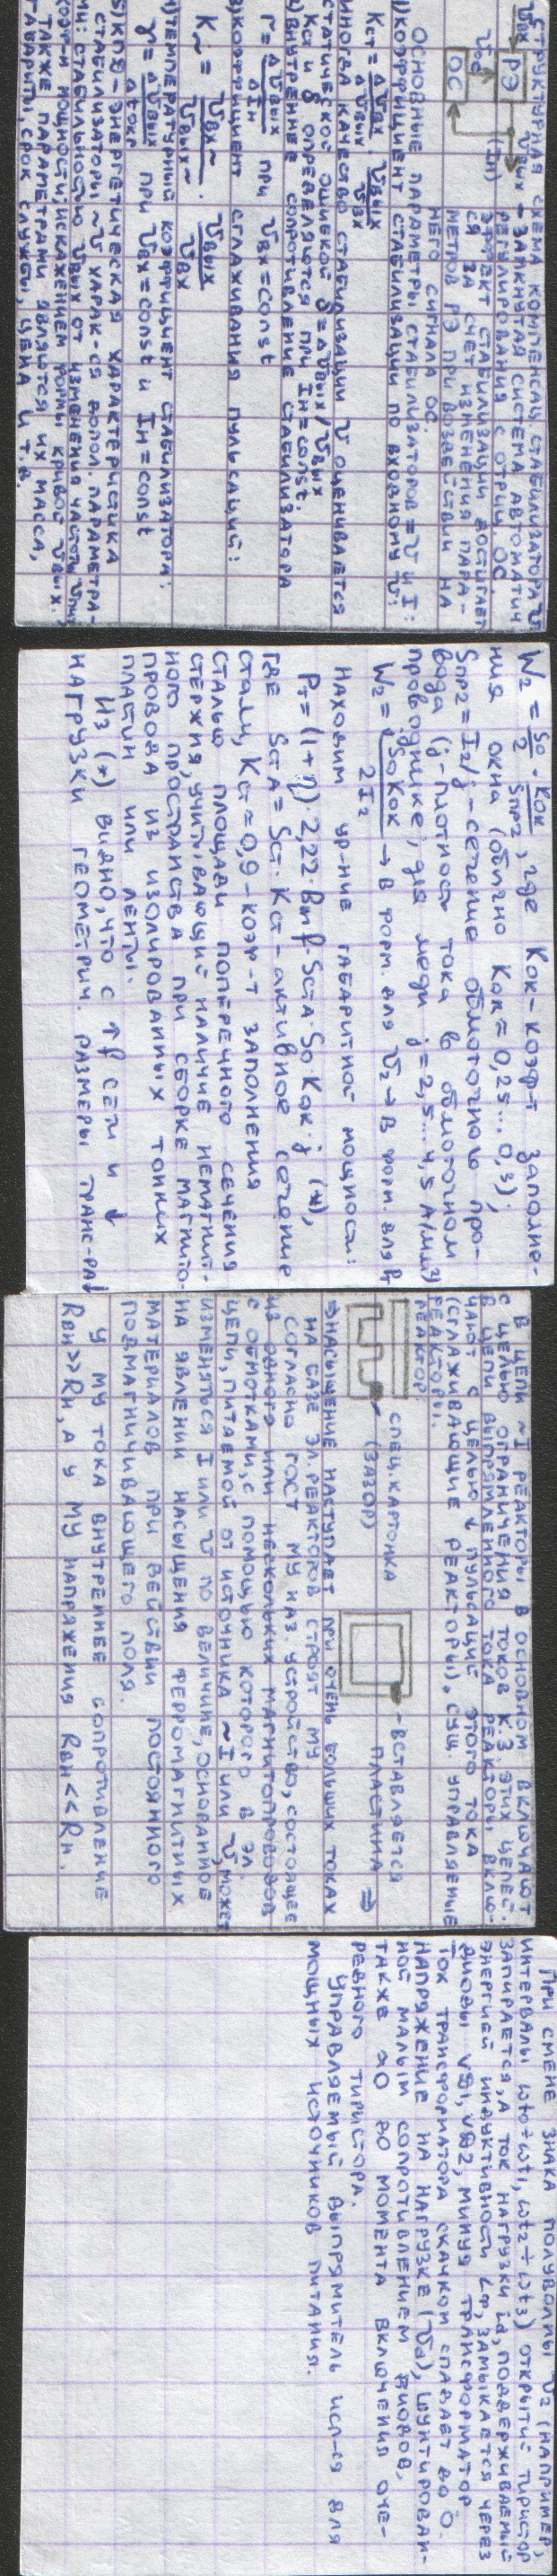 СТРУКТУРНАЯ СХЕМА КОМПЕНСАЦ. СТАБИЛИЗАТОРА U
Uвх Uвых – ЗАМКНУТАЯ СИСТЕМА АВТОМАТИЧ.
РЭ РЕГУЛИРОВАНИЯ С ОТРИЦ. ОС.
(Iн) ЭФФЕКТ СТАБИЛИЗАЦИИ ДОСТИГАЕТ-
Uс СЯ ЗА СЧЕТ ИЗМЕНЕНИЯ ПАРА-
ОС МЕТРОВ РЭ ПРИ ВОЗДЕЙСТВИИ НА
НЕГО СИГНАЛА ОС.
ОСНОВНЫЕ ПАРАМЕТРЫ СТАБИЛИЗАТОРОВ = U И I:
1) КОЭФФИЦИЕНТ СТАБИЛИЗАЦИИ ПО ВХОДНОМУ U:
Kст = ΔUвх/ΔUвых · Uвых/Uвх
ИНОГДА КАЧЕСТВО СТАБИЛИЗАЦИИ U ОЦЕНИВАЕТСЯ
СТАТИЧЕСКОЙ ОШИБКОЙ δ = ΔUвых/Uвых
Kст И δ ОПРЕДЕЛЯЮТСЯ ПРИ Iн = const.
2) ВНУТРЕННЕЕ СОПРОТИВЛЕНИЕ СТАБИЛИЗАТОРА
r = ΔUвых/ΔIн ПРИ Uвх = const
3) КОЭФФИЦИЕНТ СГЛАЖИВАНИЯ ПУЛЬСАЦИЙ:
K~ = Uвх~/Uвых~ · Uвых/Uвх
4) ТЕМПЕРАТУРНЫЙ КОЭФФИЦИЕНТ СТАБИЛИЗАТОРА:
γ = ΔUвых/Δtокр ПРИ Uвх = const И Iн = const
5) КПД – ЭНЕРГЕТИЧЕСКАЯ ХАРАКТЕРИСТИКА
СТАБИЛИЗАТОРЫ ~U ХАРАК-СЯ ДОПОЛ. ПАРАМЕТРА-
МИ: СТАБИЛЬНОСТЬЮ Uвых ОТ ИЗМЕНЕНИЯ ЧАСТОТЫ Uпит,
КОЭФ-М МОЩНОСТИ; ИСКАЖЕНИЕМ ФОРМЫ КРИВОЙ Uвых.
ТАКЖЕ ПАРАМЕТРАМИ ЯВЛЯЮТСЯ ИХ МАССА,
ГАБАРИТЫ, СРОК СЛУЖБЫ, ЦЕНА И Т.Д.
W2 = S0/2 · Kок/Sпр2, ГДЕ Kок – КОЭФ-Т ЗАПОЛНЕ-
НИЯ ОКНА (ОБЫЧНО Kок ≈ 0,25...0,3);
Sпр2 = I2/j – СЕЧЕНИЕ ОБМОТОЧНОГО ПРО-
ВОДА (j – ПЛОТНОСТЬ ТОКА В ОБМОТОЧНОМ
ПРОВОДНИКЕ; ДЛЯ МЕДИ j = 2,5...4,5 А/мм²)
W2 = jS0Kок/2I2 → В ФОРМ. ДЛЯ U2 → В ФОРМ. ДЛЯ Pт
НАХОДИМ УР-НИЕ ГАБАРИТНОЙ МОЩНОСТИ:
Pт = (1+η)·2,22·Bm·f·SстA·S0·Kок·j (*),
ГДЕ SстA = Sст·Kст – АКТИВНОЕ СЕЧЕНИЕ
СТАЛИ, Kст ≈ 0,9 – КОЭФ-Т ЗАПОЛНЕНИЯ
СТАЛЬЮ ПЛОЩАДИ ПОПЕРЕЧНОГО СЕЧЕНИЯ
СТЕРЖНЯ, УЧИТЫВАЮЩИЙ НАЛИЧИЕ НЕМАГНИТ-
НОГО ПРОСТРАНСТВА ПРИ СБОРКЕ МАГНИТО-
ПРОВОДА ИЗ ИЗОЛИРОВАННЫХ ТОНКИХ
ПЛАСТИН ИЛИ ЛЕНТЫ.
ИЗ (*) ВИДНО, ЧТО С ↑f СЕТИ И ↓
НАГРУЗКИ ГЕОМЕТРИЧ. РАЗМЕРЫ ТРАНС-РА↓
В ЦЕПИ ~I РЕАКТОРЫ В ОСНОВНОМ ВКЛЮЧАЮТ
С ЦЕЛЬЮ ОГРАНИЧЕНИЯ ТОКОВ К.З. ЭТИХ ЦЕПЕЙ.
В ЦЕПИ ВЫПРЯМЛЕННОГО ТОКА РЕАКТОРЫ ВКЛЮ-
ЧАЮТ С ЦЕЛЬЮ ↓ ПУЛЬСАЦИЙ ЭТОГО ТОКА
(СГЛАЖИВАЮЩИЕ РЕАКТОРЫ). СУЩ. УПРАВЛЯЕМЫЕ
РЕАКТОРЫ.
РЕАКТОР:
СПЕЦ. КАРТОНКА
(ЗАЗОР)
– ВСТАВЛЯЕТСЯ
ПЛАСТИНА ⇒
⇒ НАСЫЩЕНИЕ НАСТУПАЕТ ПРИ ОЧЕНЬ БОЛЬШИХ ТОКАХ
НА БАЗЕ ЭЛ. РЕАКТОРОВ СТРОЯТ МУ.
СОГЛАСНО ГОСТ МУ НАЗ. УСТРОЙСТВО, СОСТОЯЩЕЕ
ИЗ ОДНОГО ИЛИ НЕСКОЛЬКИХ МАГНИТОПРОВОДОВ
С ОБМОТКАМИ, С ПОМОЩЬЮ КОТОРОГО В ЭЛ.
ЦЕПИ, ПИТАЕМОЙ ОТ ИСТОЧНИКА ~I ИЛИ U, МОЖЕТ
ИЗМЕНЯТЬСЯ I ИЛИ U ПО ВЕЛИЧИНЕ, ОСНОВАННОЕ
НА ЯВЛЕНИИ НАСЫЩЕНИЯ ФЕРРОМАГНИТНЫХ
МАТЕРИАЛОВ ПРИ ДЕЙСТВИИ ПОСТОЯННОГО
ПОДМАГНИЧИВАЮЩЕГО ПОЛЯ.
У МУ ТОКА ВНУТРЕННЕЕ СОПРОТИВЛЕНИЕ
Rвн>>Rн, А У МУ НАПРЯЖЕНИЯ Rвн<<Rн.
ПРИ СМЕНЕ ЗНАКА ПОЛУВОЛНЫ U2 (НАПРИМЕР,
ИНТЕРВАЛЫ ωt0÷ωt1, ωt2÷ωt3) ОТКРЫТЫЙ ТИРИСТОР
ЗАПИРАЕТСЯ, А ТОК НАГРУЗКИ id, ПОДДЕРЖИВАЕМЫЙ
ЭНЕРГИЕЙ ИНДУКТИВНОСТИ Lф, ЗАМЫКАЕТСЯ ЧЕРЕЗ
ДИОДЫ VD1, VD2, МИНУЯ ТРАНСФОРМАТОР
ТОК ТРАНСФОРМАТОРА СКАЧКОМ СПАДАЕТ ДО 0.
НАПРЯЖЕНИЕ НА НАГРУЗКЕ (Ud), ШУНТИРОВАН-
НОЙ МАЛЫМ СОПРОТИВЛЕНИЕМ ДИОДОВ,
ТАКЖЕ ≈0 ДО МОМЕНТА ВКЛЮЧЕНИЯ ОЧЕ-
РЕДНОГО ТИРИСТОРА.
УПРАВЛЯЕМЫЙ ВЫПРЯМИТЕЛЬ ИСП-СЯ ДЛЯ
МОЩНЫХ ИСТОЧНИКОВ ПИТАНИЯ.